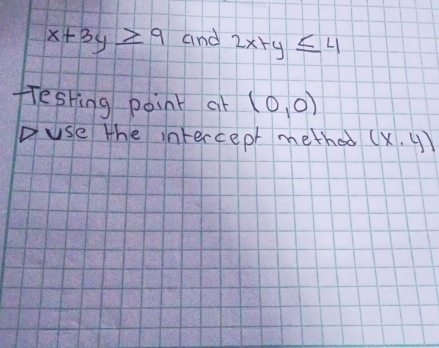 x+3y ≥ 9 and 2x+y ≤ 4
Testing point at (0,0)
Use the intercept method (x,y)